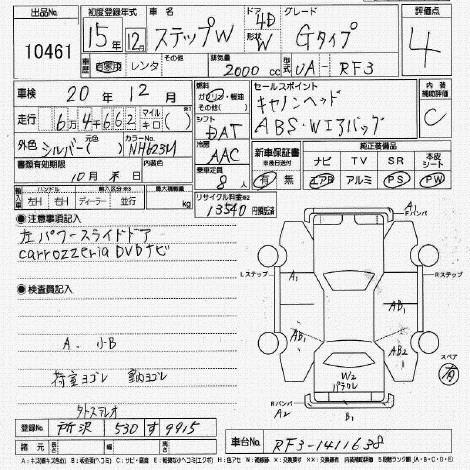 出品No. 10461
初度登録年式 15年 12月
車名 ステップW
ドア 4D
形状 W
グレード Gタイプ
評価点 4
車歴 自家用 レンタ その他
排気量 2000 cc
型式 UA-RF3
車検 20年 12月
走行 6万4千662 マイル キロ ( )
外色 シルバー 元色 ( )
カラーNo. NH623M
書類有効期限 10月末
内装色
燃料 ガソリン・軽油 その他( )
シフト DAT
冷房 AAC
乗車定員 8人
リサイクル料金※2 13540 円預託済
セールスポイント
キャノンヘッド
ABS・Wエアバッグ
内装補助評価 C
新車保証書 有 無
純正装備品
ナビ TV SR 本皮シート
エアB アルミ PS PW
輸入車 ハンドル 右H 左H
輸入区分※3 ディーラー 並行
最大積載量 kg
●注意事項記入
左パワースライドドア
carrozzeria DVDナビ
●検査員記入
A. 小B
荷室ヨゴレ 室内ヨゴレ
Fバンパ A1
Lステップ
Rステップ
A1
AB1
AB1
AB2
スペア 有
W2
Rバンパ A2
B1
登録No. 所沢 530 す 9915
諸元 長 幅 高
車台No. RF3-1411638